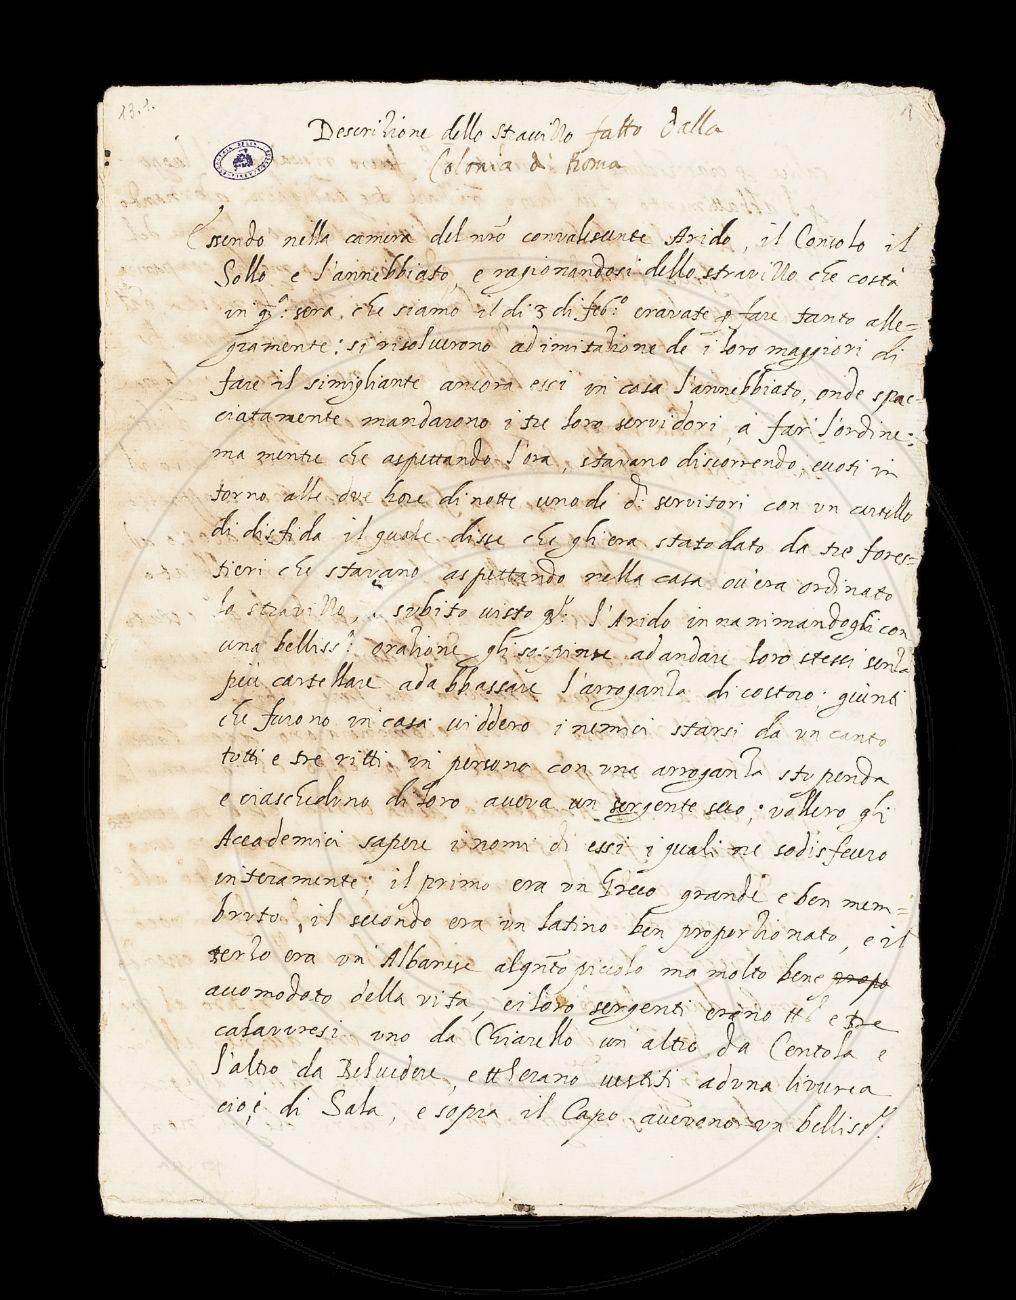 13.1.
1
Descrizione dello stravizzo fatto dalla
Colonia di Roma
Essendo nella camera del nrõ convalescente Arido, il Consolo il
Sollo e l'annebbiato, e ragionandosi dello stravizzo che costà
in q.ª sera, che siamo il di 3 di feb.º eravate p fare tanto alle=
gramente: si risolverono ad imitazione de i loro maggiori di
fare il simigliante ancora essi in casa l'annebbiato, onde spac=
ciatamente mandarono i tre loro servidori, a far l'ordine:
ma mentre che aspettando l'ora, stavano discorrendo, in
torno alle due hore di notte uno de d.i servitori con un cartello
di disfida il quale disse che gli era stato dato da tre fores=
tieri che stavano aspettando nella casa ov'era ordinato
lo stravizzo, subito visto q.º l'Arido innanimandogli con
una belliss.ª orazione gli sospinse ad andare loro stessi senza
più cartellare ad abbassare l'arroganza di costoro; giunti
che furono in casa viddero i nemici starsi da un canto
tutti e tre ritti in persona con una arroganza stupenda
e ciascheduno di loro aveva un sergente seco; vollero gli
Accademici sapere i nomi di essi i quali ne sodisfecero
interamente; il primo era un Greco grande e ben mem=
bruto, il secondo era un latino ben proporzionato, e il
terzo era un Albanese alqnto piccolo ma molto bene propo
accomodato della vita, e i loro sergenti erano tt.i e tre
calavresi uno da Chiarello un altro da Centola e
l'altro da Belvedere, e tt.i erano vestiti ad una livrea
cioè di Sala, e sopra il Capo avevano un belliss.º